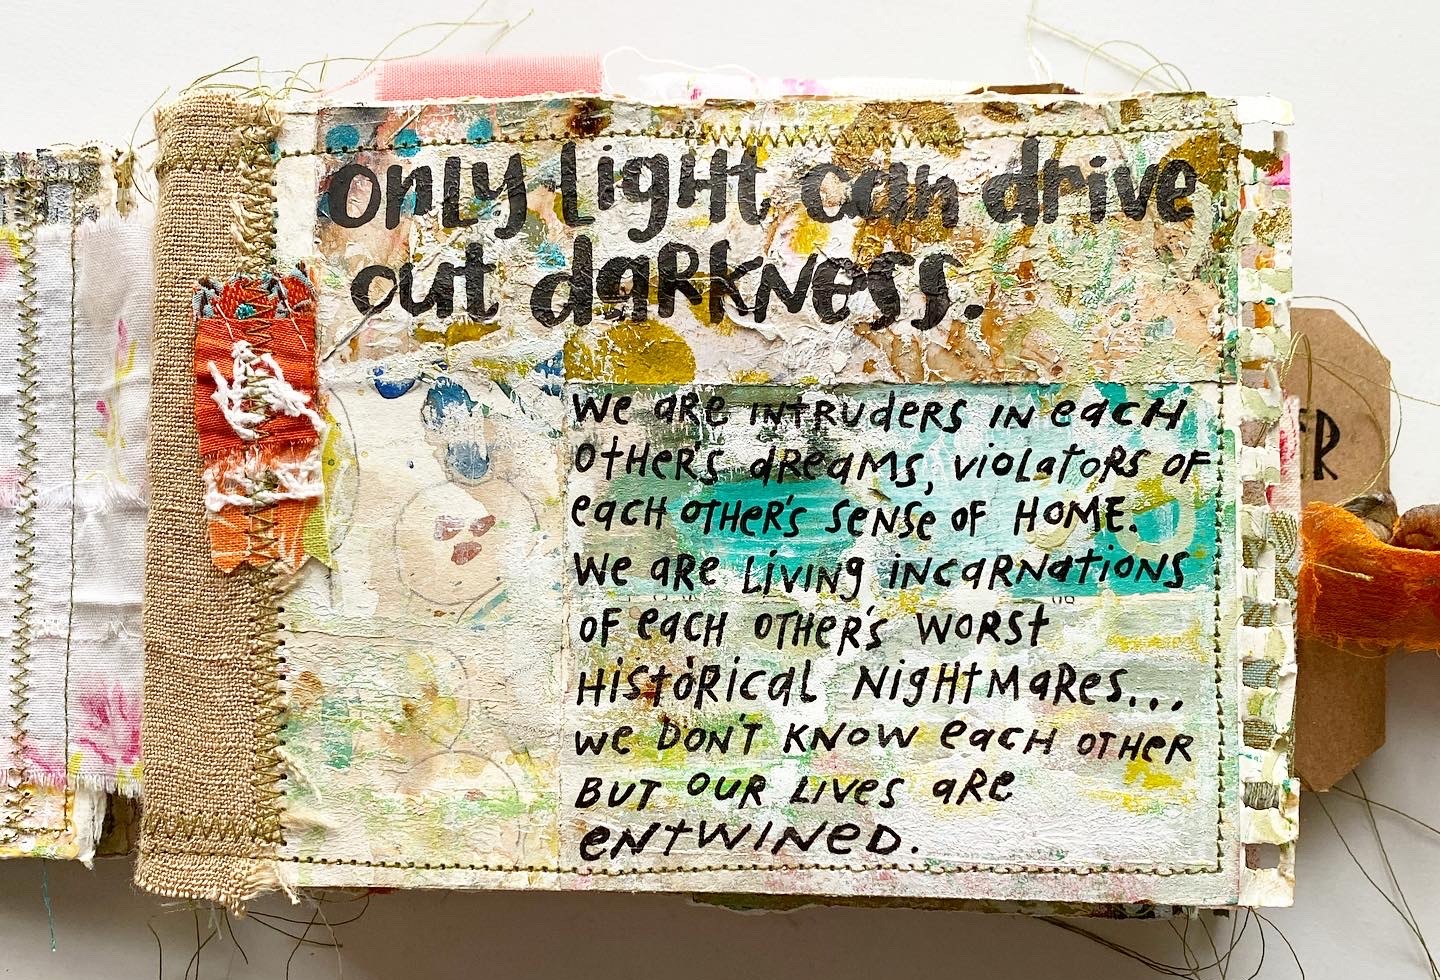 only light can drive
out darkness.
we are intruders in each
other's dreams, violators of
each other's sense of home.
we are living incarnations
of each other's worst
historical nightmares...
we don't know each other
but our lives are
entwined.
ER